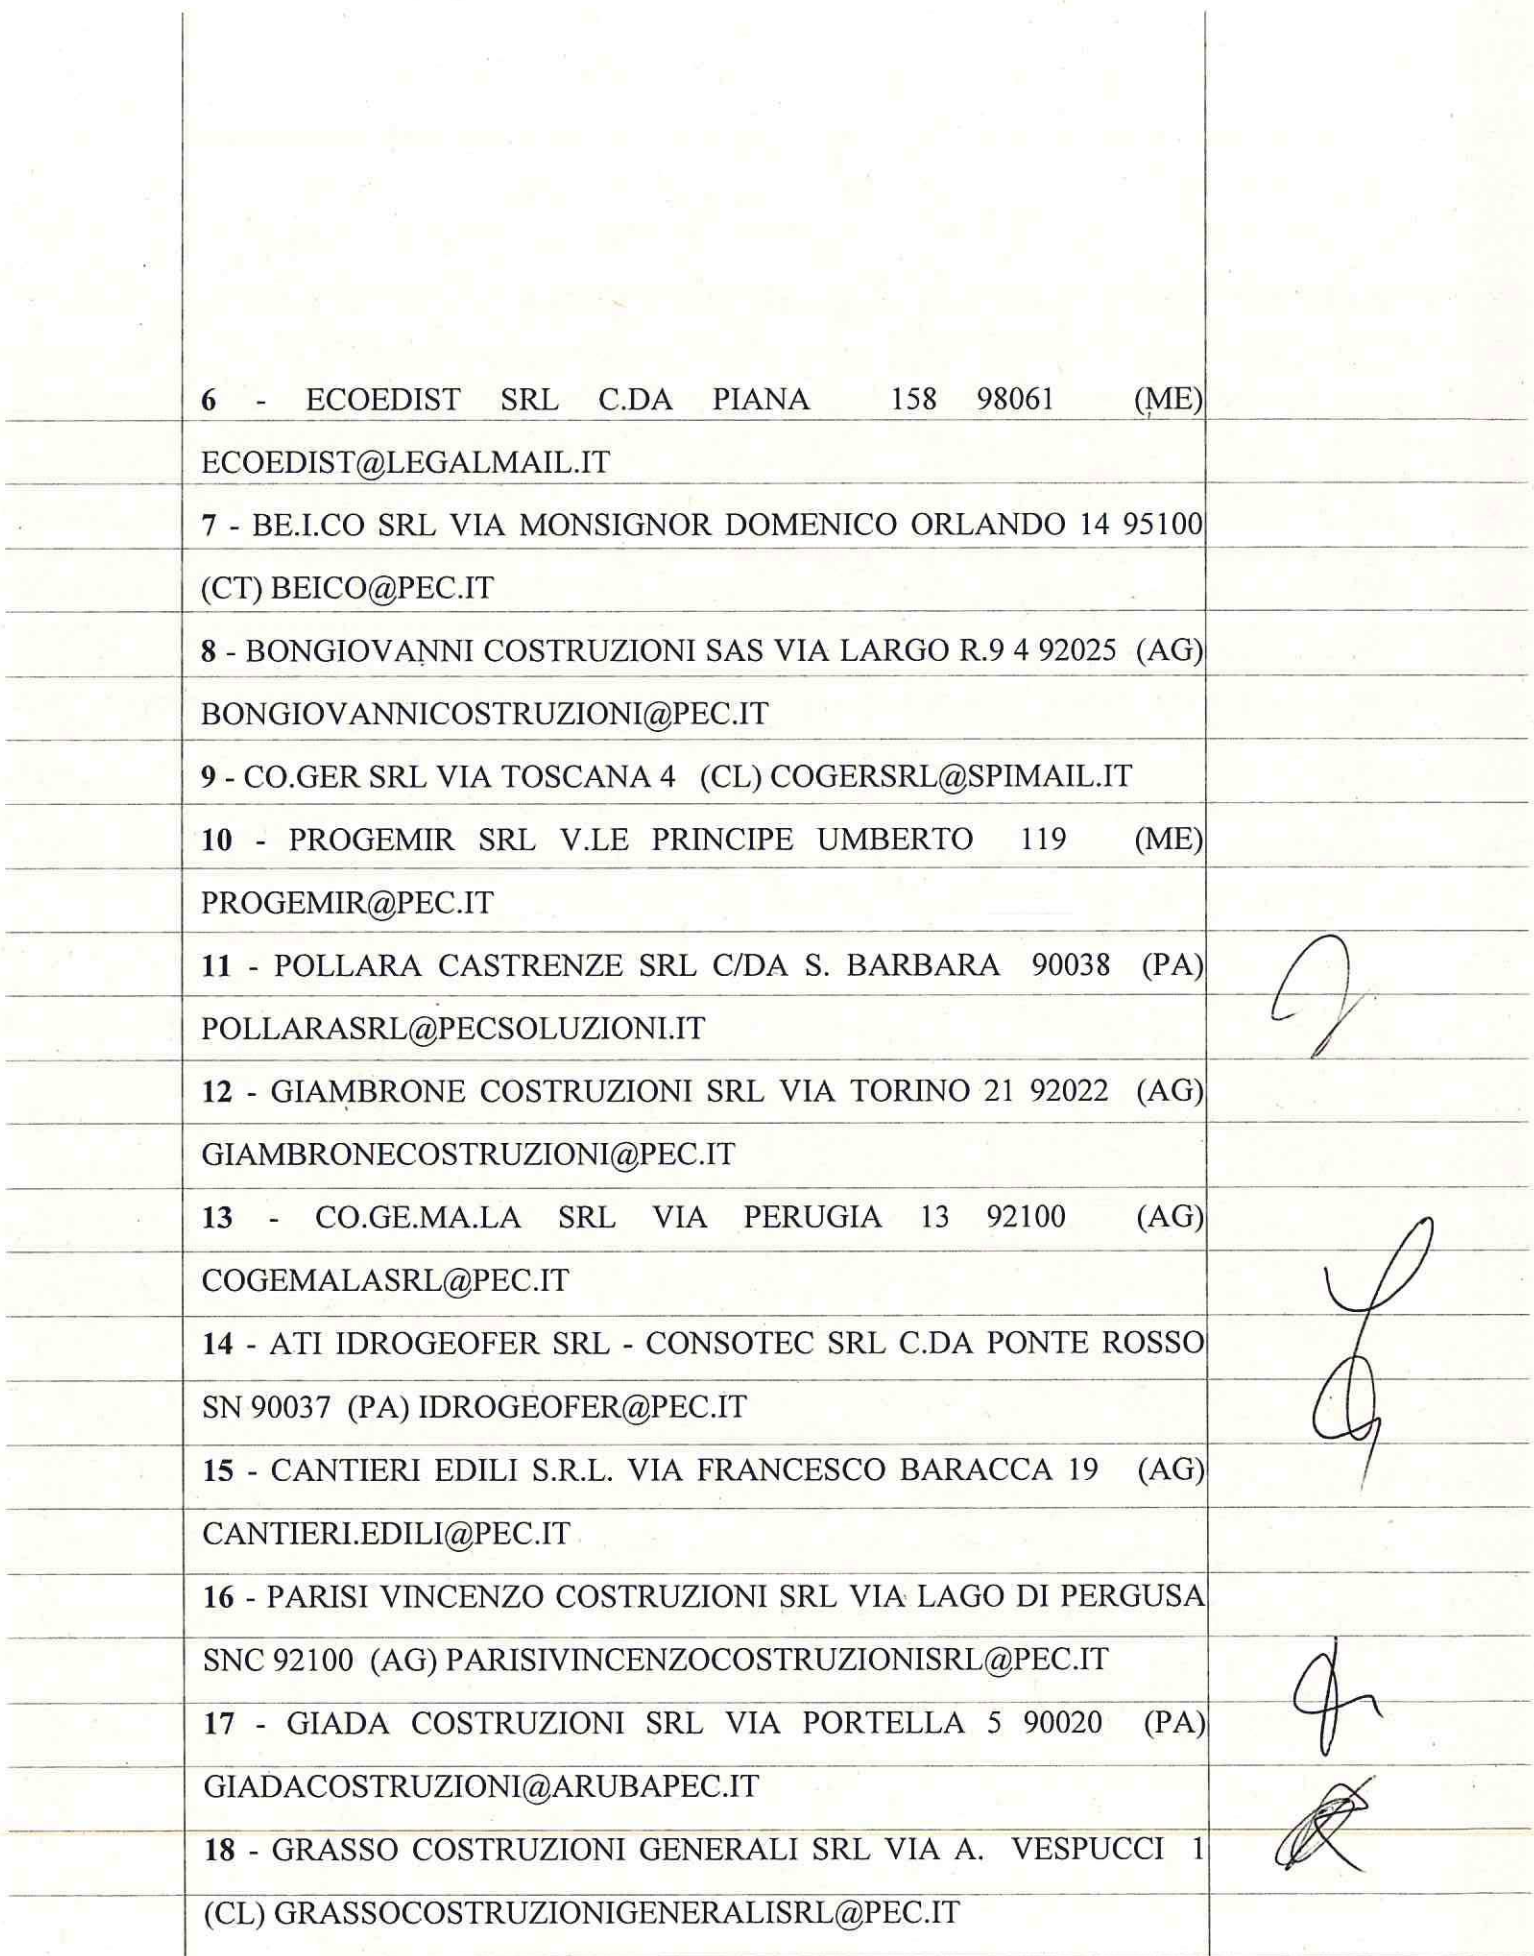 6 - ECOEDIST SRL C.DA PIANA 158 98061 (ME)
ECOEDIST@LEGALMAIL.IT
7 - BE.I.CO SRL VIA MONSIGNOR DOMENICO ORLANDO 14 95100
(CT) BEICO@PEC.IT
8 - BONGIOVANNI COSTRUZIONI SAS VIA LARGO R.9 4 92025 (AG)
BONGIOVANNICOSTRUZIONI@PEC.IT
9 - CO.GER SRL VIA TOSCANA 4 (CL) COGERSRL@SPIMAIL.IT
10 - PROGEMIR SRL V.LE PRINCIPE UMBERTO 119 (ME)
PROGEMIR@PEC.IT
11 - POLLARA CASTRENZE SRL C/DA S. BARBARA 90038 (PA)
POLLARASRL@PECSOLUZIONI.IT
12 - GIAMBRONE COSTRUZIONI SRL VIA TORINO 21 92022 (AG)
GIAMBRONECOSTRUZIONI@PEC.IT
13 - CO.GE.MA.LA SRL VIA PERUGIA 13 92100 (AG)
COGEMALASRL@PEC.IT
14 - ATI IDROGEOFER SRL - CONSOTEC SRL C.DA PONTE ROSSO
SN 90037 (PA) IDROGEOFER@PEC.IT
15 - CANTIERI EDILI S.R.L. VIA FRANCESCO BARACCA 19 (AG)
CANTIERI.EDILI@PEC.IT
16 - PARISI VINCENZO COSTRUZIONI SRL VIA LAGO DI PERGUSA
SNC 92100 (AG) PARISIVINCENZOCOSTRUZIONISRL@PEC.IT
17 - GIADA COSTRUZIONI SRL VIA PORTELLA 5 90020 (PA)
GIADACOSTRUZIONI@ARUBAPEC.IT
18 - GRASSO COSTRUZIONI GENERALI SRL VIA A. VESPUCCI 1
(CL) GRASSOCOSTRUZIONIGENERALISRL@PEC.IT